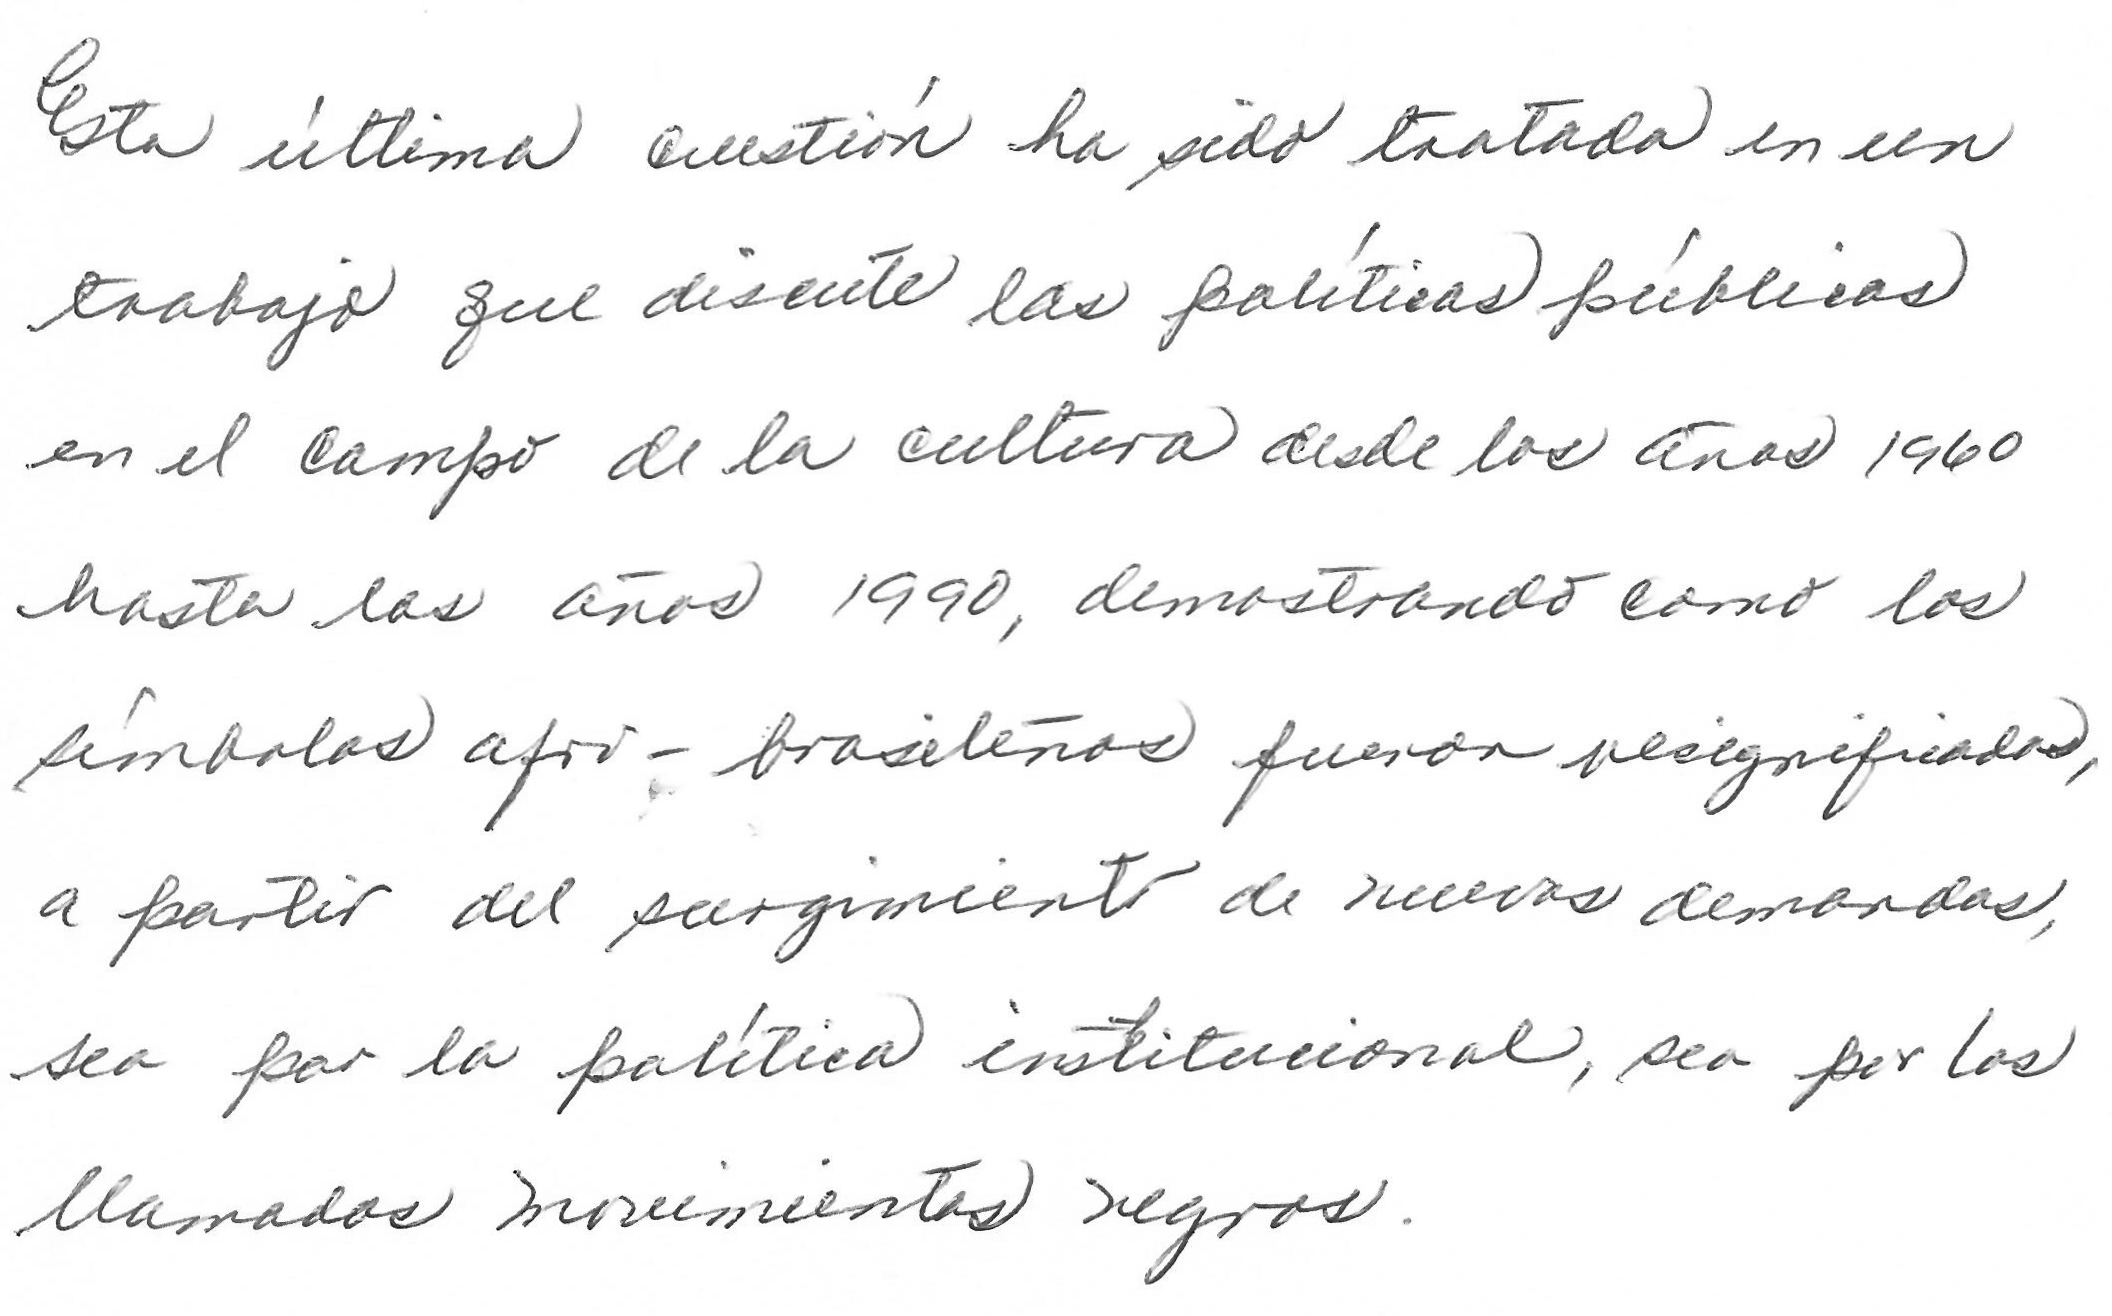 Esta última cuestión ha sido tratada en un
trabajo que discute las políticas públicas
en el campo de la cultura desde los años 1960
hasta los años 1990, demostrando como los
símbolos afro-brasileños fueron resignificados,
a partir del surgimiento de nuevas demandas,
sea por la política institucional, sea por los
llamados movimientos negros.